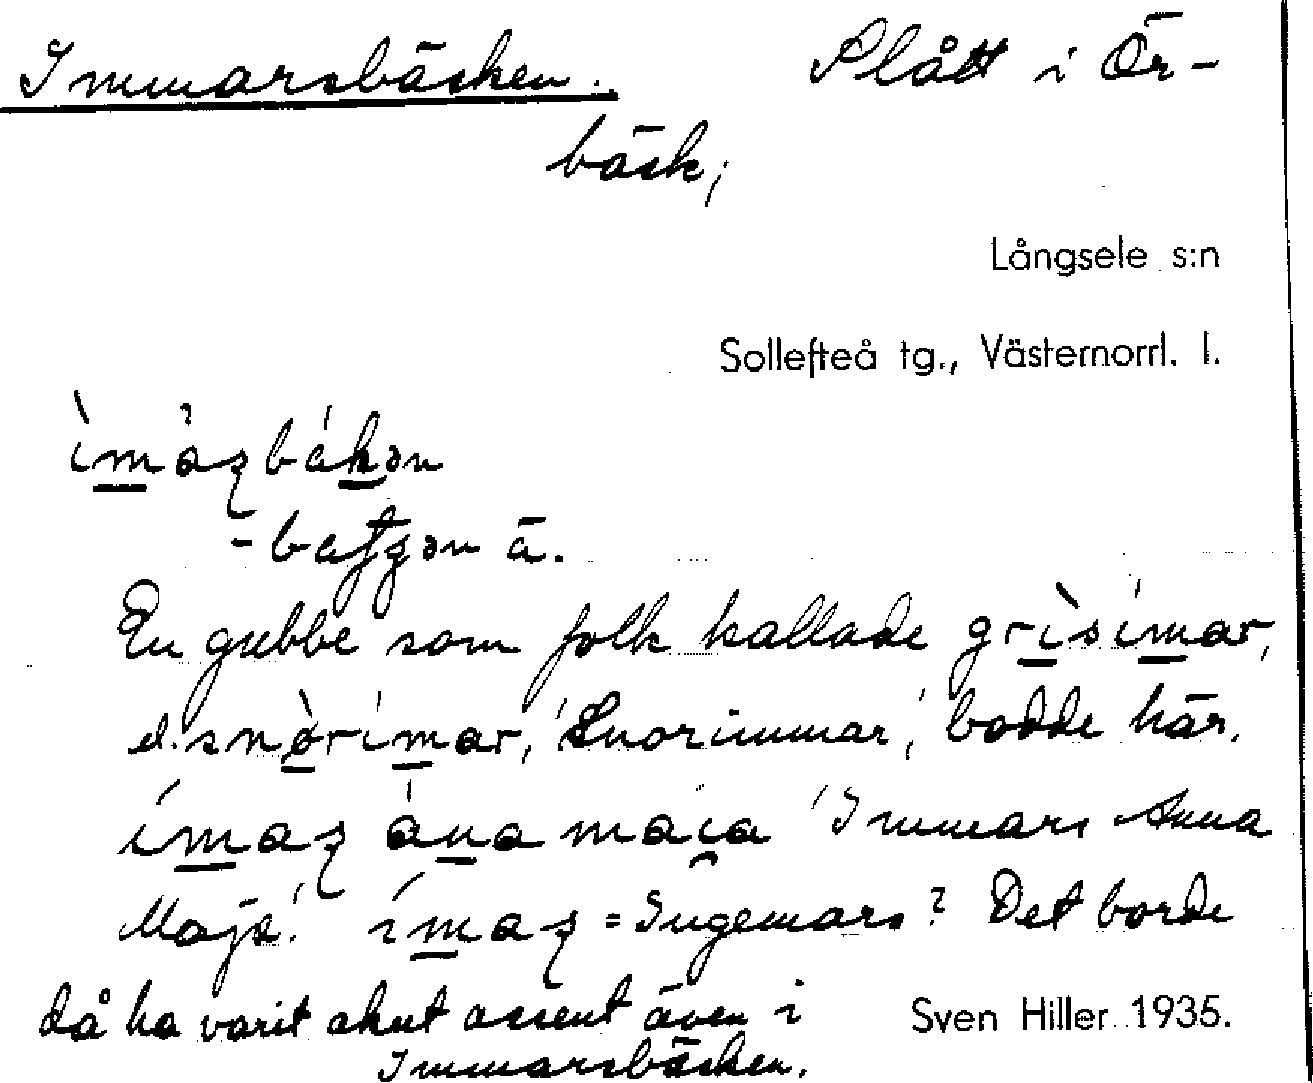 Immarsbäcken. Slått i Ör-
bäck;
Långsele s:n
Sollefteå tg., Västernorrl. l.
ìmàʂbákən
- bafʒən ä.
En gubbe som folk kallade grìsímar,
el. snòrímar, 'Snorimmar', bodde här.
ímaʂ ána mai̯a 'Immars Anna
Maja'. ímaʂ = Ingemars? Det borde
då ha varit akut accent även i
Sven Hiller 1935.
Immarsbäcken.